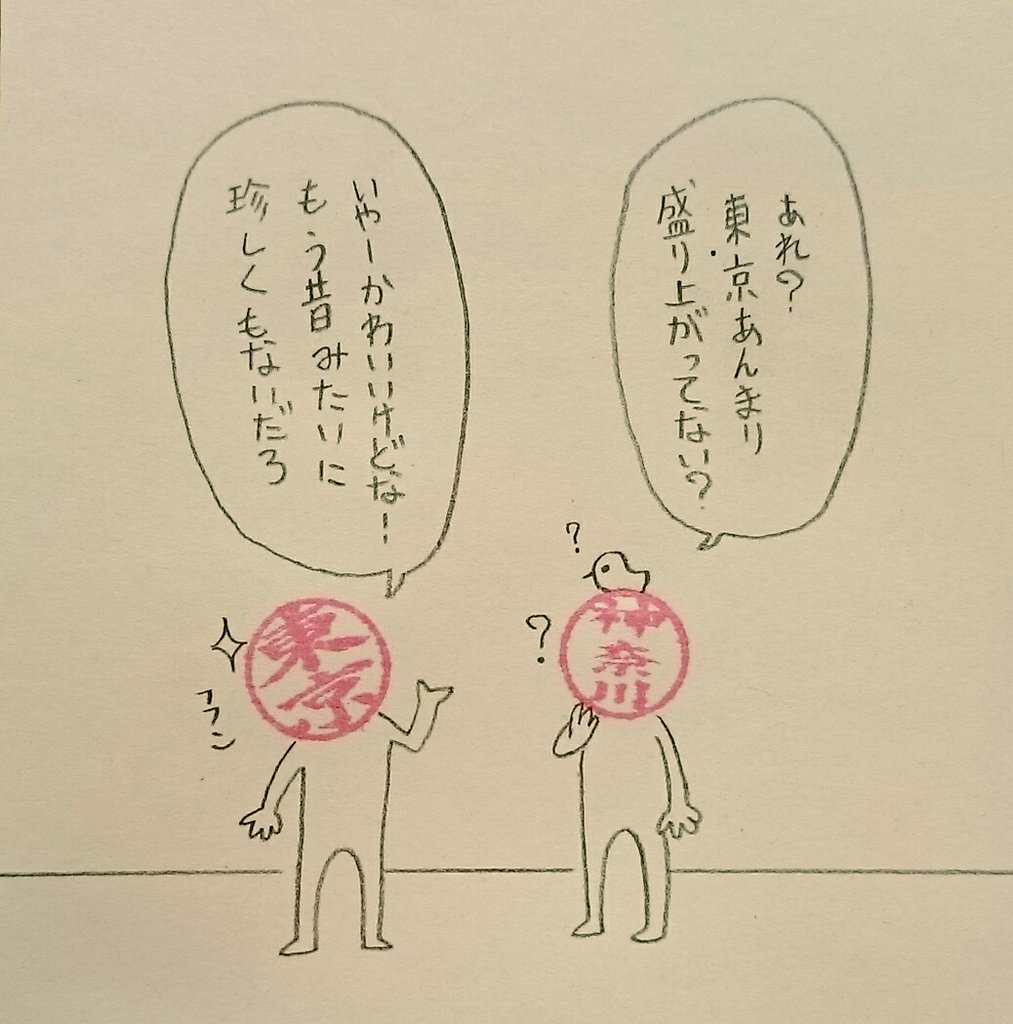 あれ?
東京あんまり
盛り上がってない?
いやーかわいいけどな!
もう昔みたいに
珍しくもないだろ
?
?
神奈川
東京
フフン